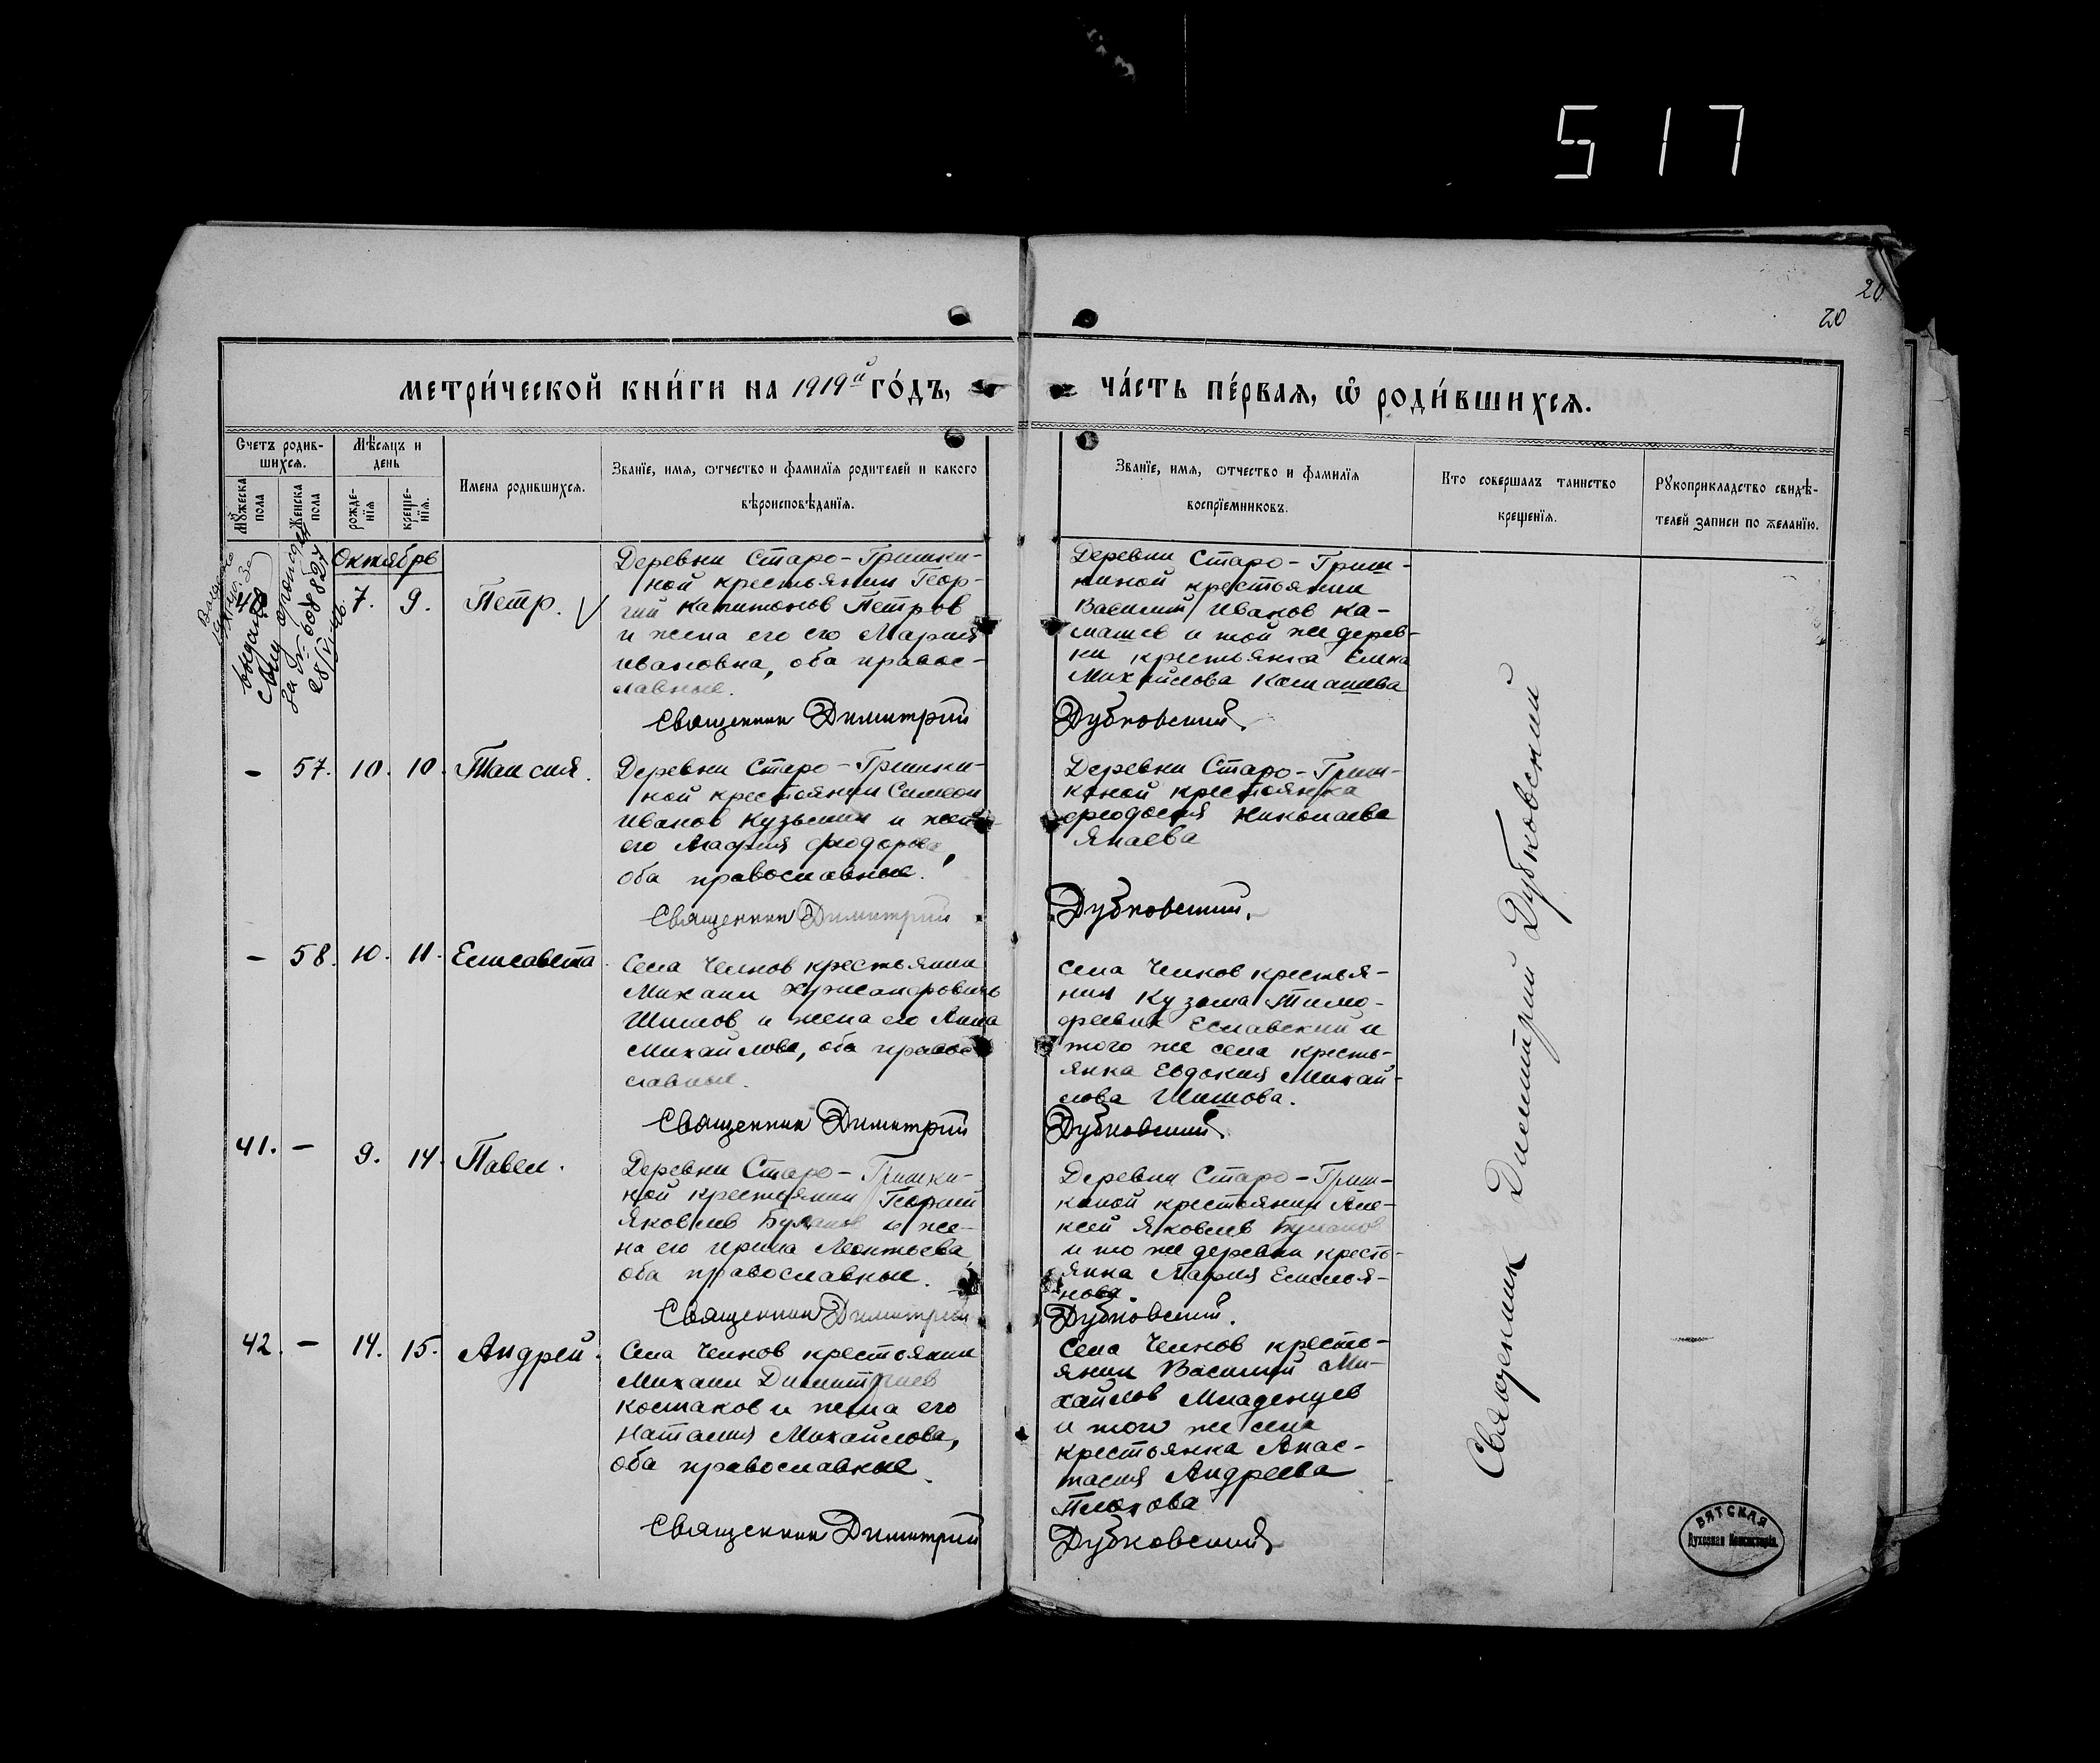 517
20
20
МЕТРИ́ЧЕСКОЙ КНИ́ГИ НА 1919й ГО́ДЪ,
ЧА́СТЬ ПЕ́РВАЯ, Ѿ РОДИ́ВШИХСЯ.
Счетъ родив-
шихся.
Мѣсяцъ и
день
Мужеска
пола
Женска
пола
рожде-
нїя
креще-
нїя.
Имена родившихся.
Званїе, имя, ѿтчество и фамилїя родителей и какого
вѣроисповѣданїя.
Званїе, имя, ѿтчество и фамилїя
воспрїемниковъ.
Кто совершалъ таинство
крещенїя.
Рукоприкладство свидѣ-
телей записи по желанїю.
Октябрь
40
7. 9. Петр.
Деревни Старо-Гришки-
ной крестьянин Геор-
гий Капитонов Петров
и жена его его Мария
Ивановна, оба правос-
лавные.
Священник Димитрий
Деревни Старо-Гриш-
киной крестьянин
Василий Иванов Ка-
машев и той же дерев-
ни крестьянка Елена
Михайлова Камашева
Дубковский
- 57. 10. 10. Таисия.
Деревни Старо-Гришки-
ной крестьянин Симеон
Иванов Кузьмин и жена
его Агафия Феодорова,
оба православные.
Священник Димитрий
Деревни Старо-Гриш-
киной крестьянка
Феодосия Николаева
Япаева
Дубковский.
- 58. 10. 11. Елисавета.
Села Челнов крестьянин
Михаил
Шишов и жена его Анна
Михайлова, оба правос-
лавные.
Священник Димитрий
Села Челнов крестья-
нин Кузьма Тимо-
феевич Еславский и
того же села кресть-
янка Евдокия Михай-
лова Шишова.
Дубковский
41. - 9. 14. Павел.
Деревни Старо-Гришки-
ной крестьянин Георгий
Яковлев Буланов и же-
на его Ирина Леонтьева,
оба православные.
Священник Димитрий
Деревни Старо-Гриш-
киной крестьянин Але-
ксей Яковлев Буланов
и то же деревни кресть-
янка Мария Емелья-
нова.
Дубковский.
42. - 14. 15. Андрей.
Села Челнов крестьянин
Михаил Димитриев
Костаков и жена его
Наталия Михайлова,
оба православные.
Священник Димитрий
Села Челнов кресть-
янин Василий Ми-
хайлов Младенцев
и того же села
крестьянка Анас-
тасия Андреева
Плохова
Дубковский
Священник Димитрий Дубковский
ВЯТСКАЯ
Духовная Консисторія.